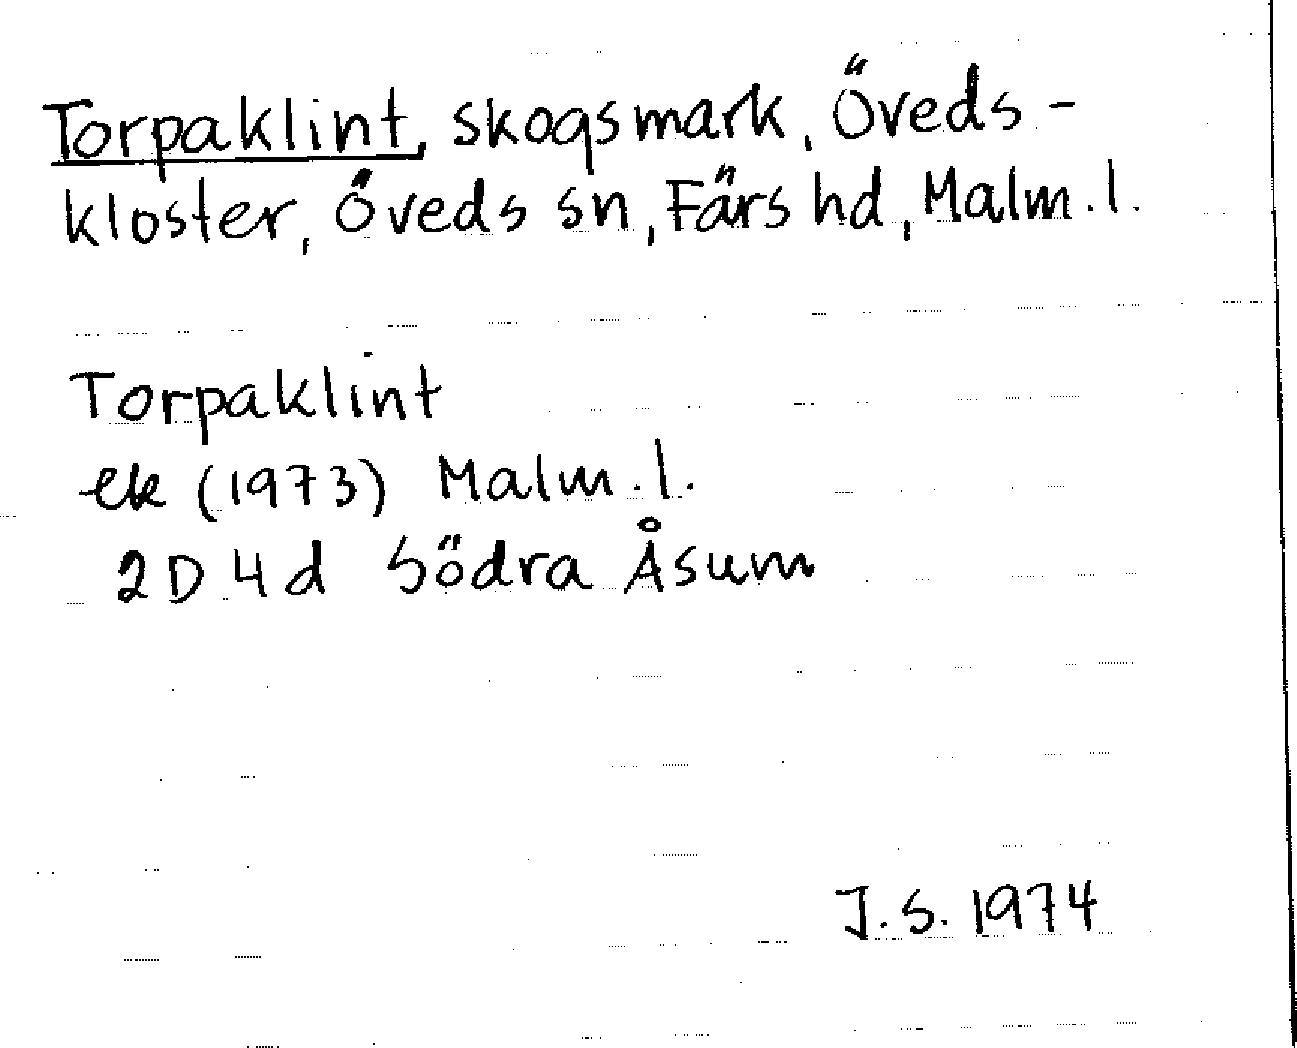 Torpaklint, skogsmark, Öveds-
kloster, Öveds sn, Färs hd, Malm.l.
Torpaklint
ek (1973) Malm.l.
2D 4d Södra Åsum
J.S. 1974